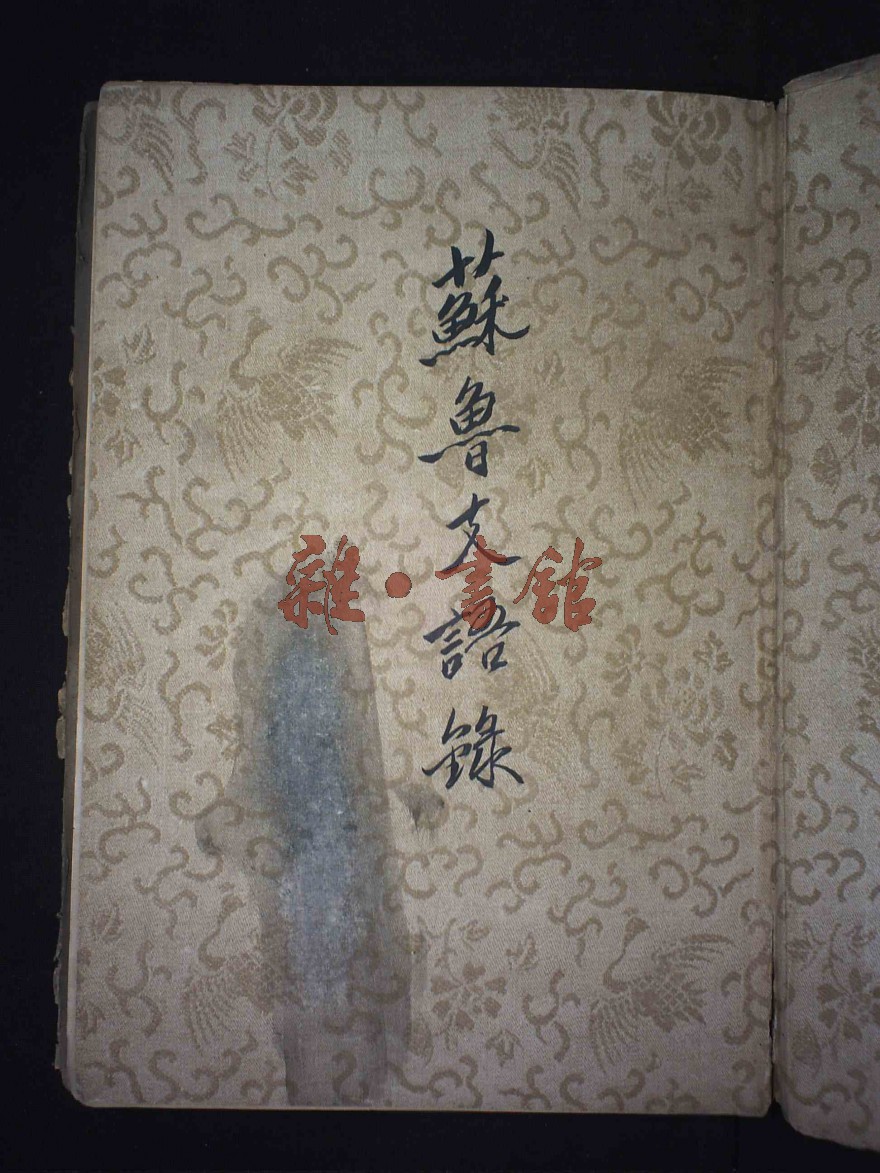 蘇魯支語錄
雜·書館